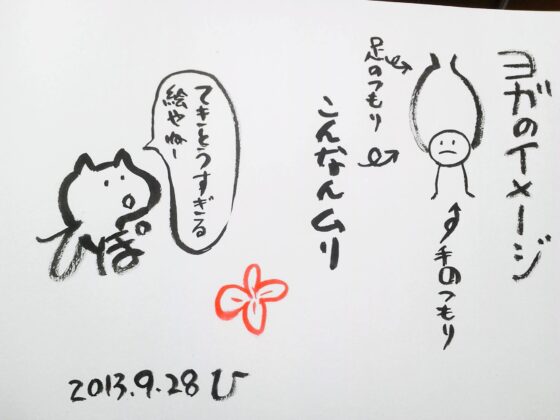 ヨガのイメージ
足のつもり
手のつもり
こんなんムリ
てきとうすぎる
絵やねー
ひぽ
2013.9.28 ひ